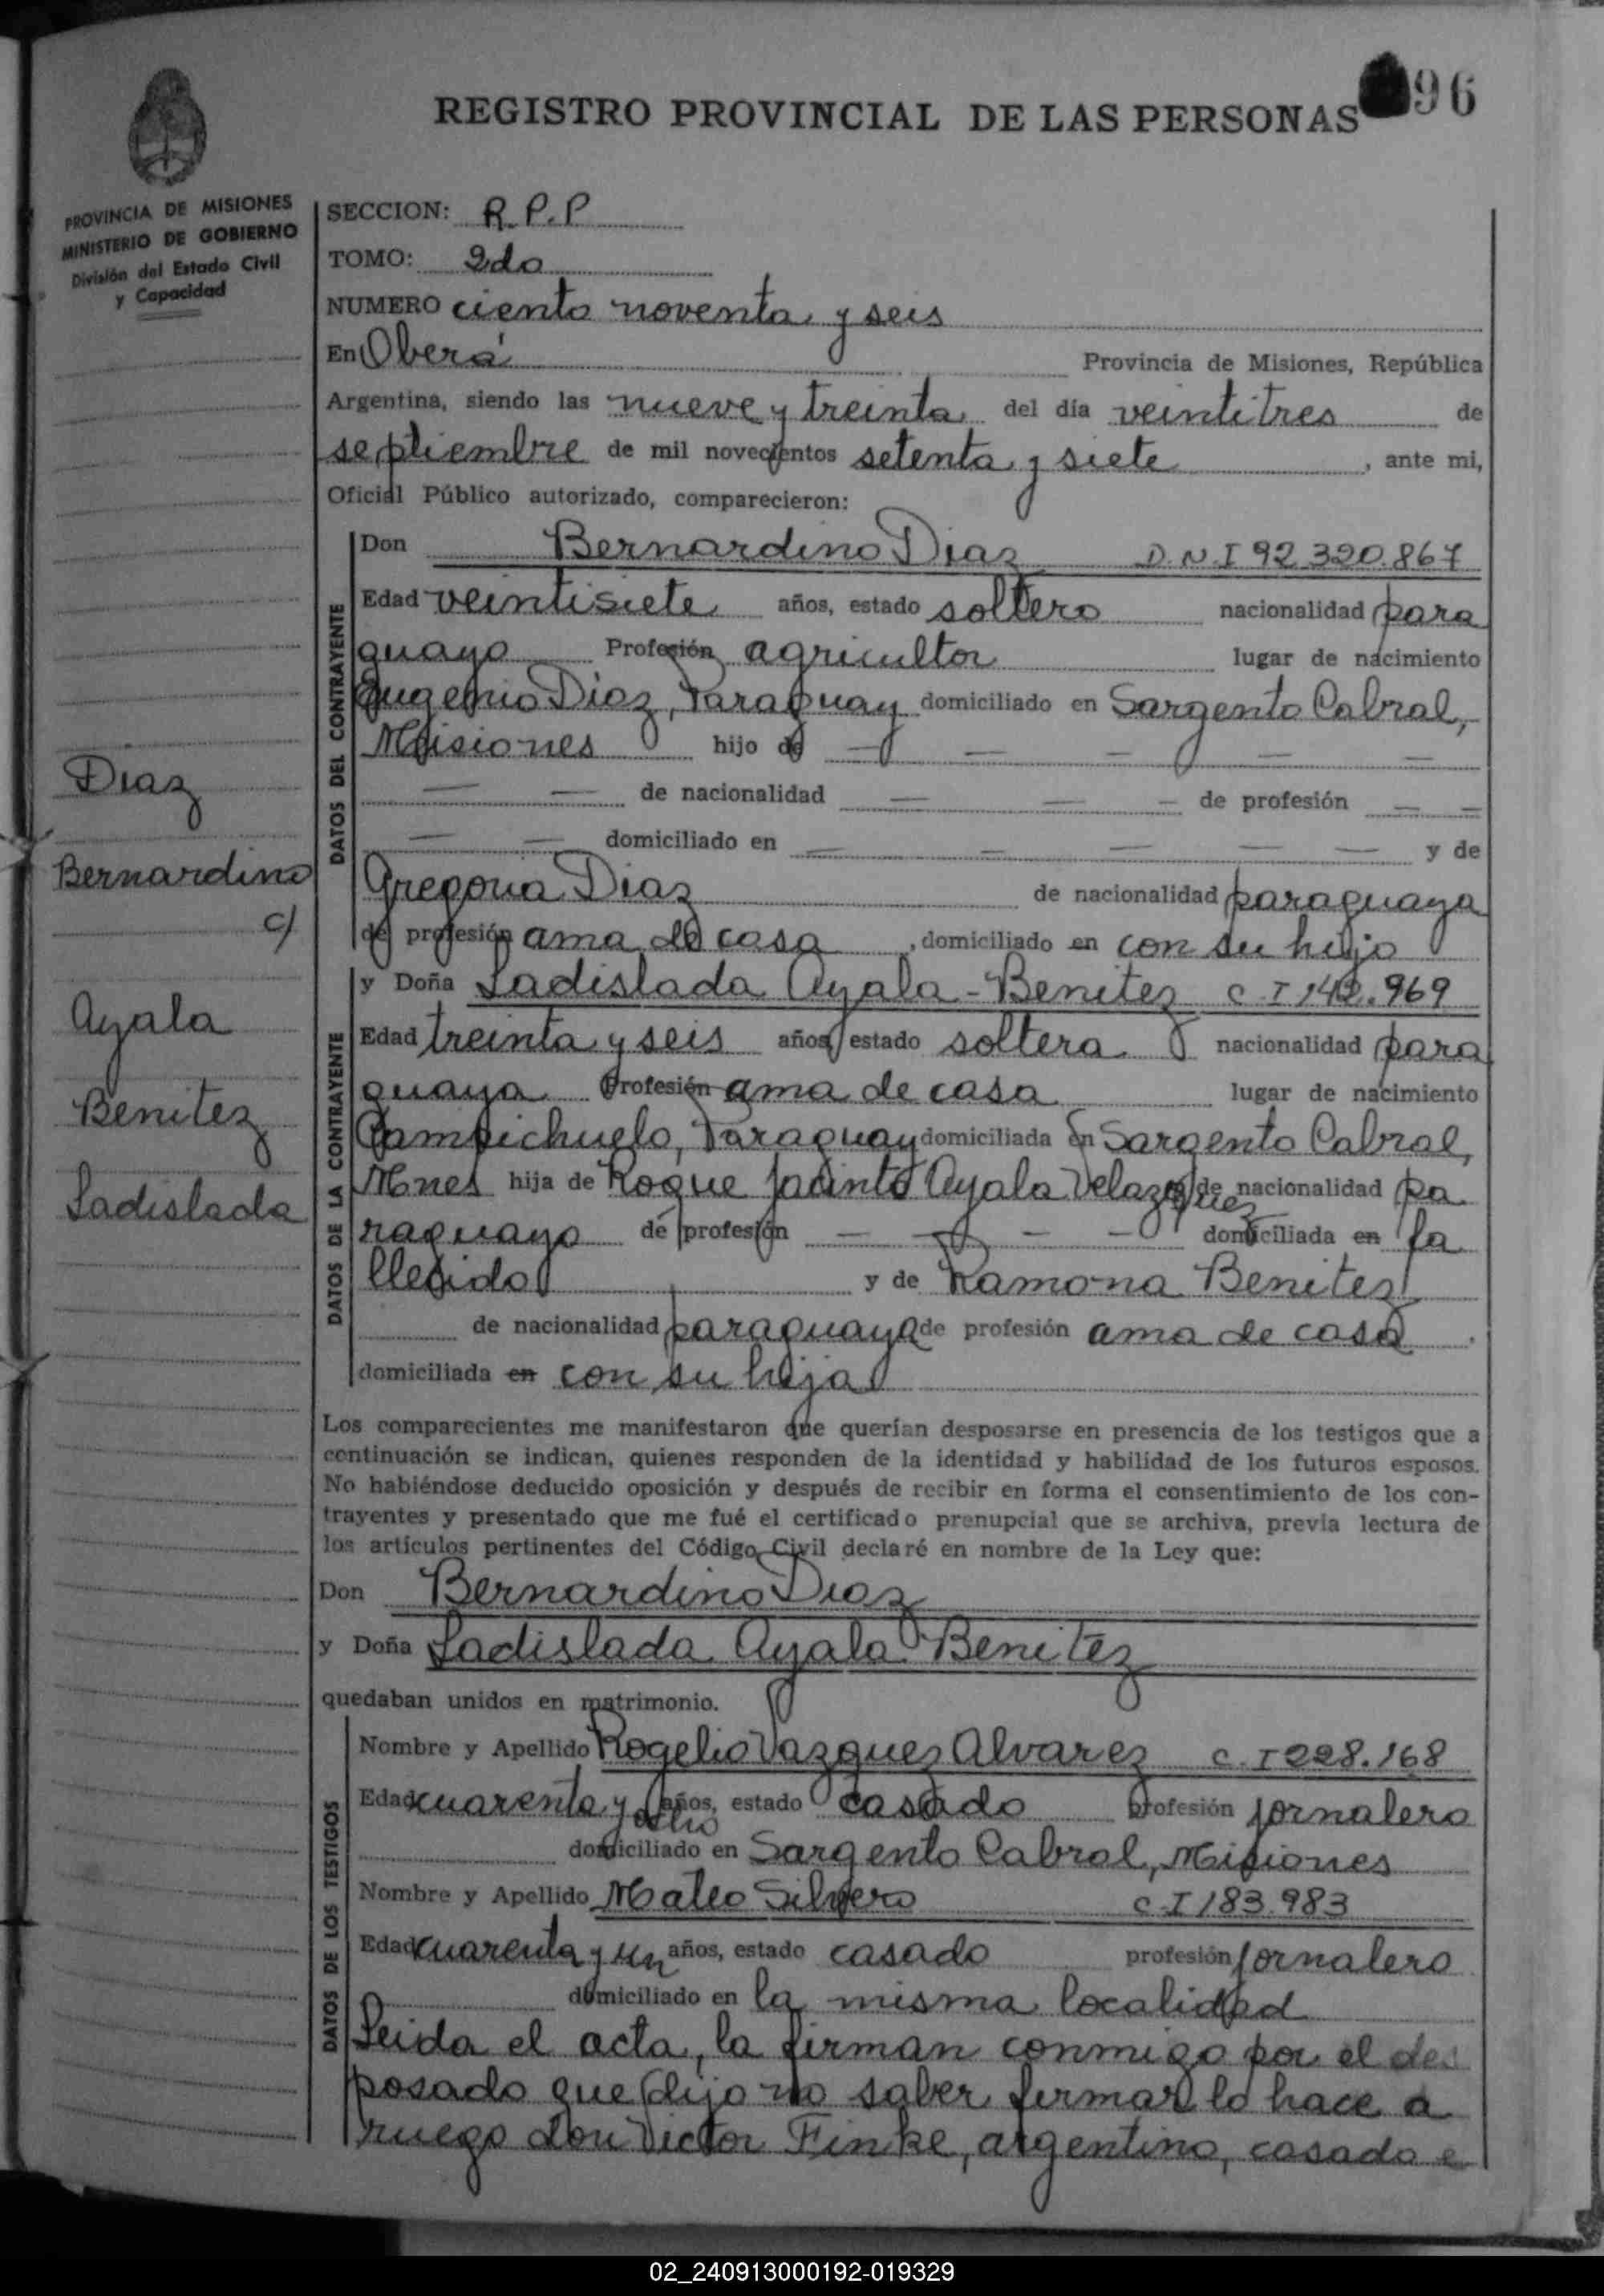 96
REGISTRO PROVINCIAL DE LAS PERSONAS
PROVINCIA DE MISIONES
MINISTERIO DE GOBIERNO
División del Estado Civil
y Capacidad
Diaz
Bernardino
c/
Ayala
Benitez
Ladislada
SECCION: R.P.P
TOMO: 2do
NUMERO ciento noventa y seis
En Oberá Provincia de Misiones, República
Argentina, siendo las nueve y treinta del día veintitres de
septiembre de mil novecientos setenta y siete, ante mi,
Oficial Público autorizado, comparecieron:
DATOS DEL CONTRAYENTE
Don Bernardino Diaz D.N.I 92.320.867
Edad veintisiete años, estado soltero nacionalidad para
guayo Profesión agricultor lugar de nacimiento
Eugenio Diaz, Paraguay domiciliado en Sargento Cabral,
Misiones hijo de — — — — —
— — de nacionalidad — — — de profesión — —
— — domiciliado en — — — — — y de
Gregoria Diaz de nacionalidad paraguaya
de profesión ama de casa, domiciliado en con su hijo
DATOS DE LA CONTRAYENTE
y Doña Ladislada Ayala - Benitez C I 142.969
Edad treinta y seis años, estado soltera nacionalidad para
guaya Profesión ama de casa lugar de nacimiento
Campichuelo, Paraguay domiciliada en Sargento Cabral,
Mnes hija de Roque Jacinto Ayala Velazquez de nacionalidad pa
raguayo de profesión — — — — domiciliada en fa
llecido y de Ramona Benitez
de nacionalidad paraguaya de profesión ama de casa.
domiciliada en con su hija
Los comparecientes me manifestaron que querían desposarse en presencia de los testigos que a
continuación se indican, quienes responden de la identidad y habilidad de los futuros esposos.
No habiéndose deducido oposición y después de recibir en forma el consentimiento de los con-
trayentes y presentado que me fué el certificado prenupcial que se archiva, previa lectura de
los artículos pertinentes del Código Civil declaré en nombre de la Ley que:
Don Bernardino Diaz
y Doña Ladislada Ayala Benitez
quedaban unidos en matrimonio.
DATOS DE LOS TESTIGOS
Nombre y Apellido Rogelio Vazquez Alvarez C. I 228.168
Edad cuarenta y ocho años, estado casado profesión jornalero
domiciliado en Sargento Cabral, Misiones
Nombre y Apellido Mateo Silvero C.I 183.983
Edad cuarenta y un años, estado casado profesión jornalero
domiciliado en la misma localidad
Leida el acta, la firman conmigo por el des
posado que dijo no saber firmar lo hace a
ruego don Victor Finke, argentino, casado e
02_240913000192-019329